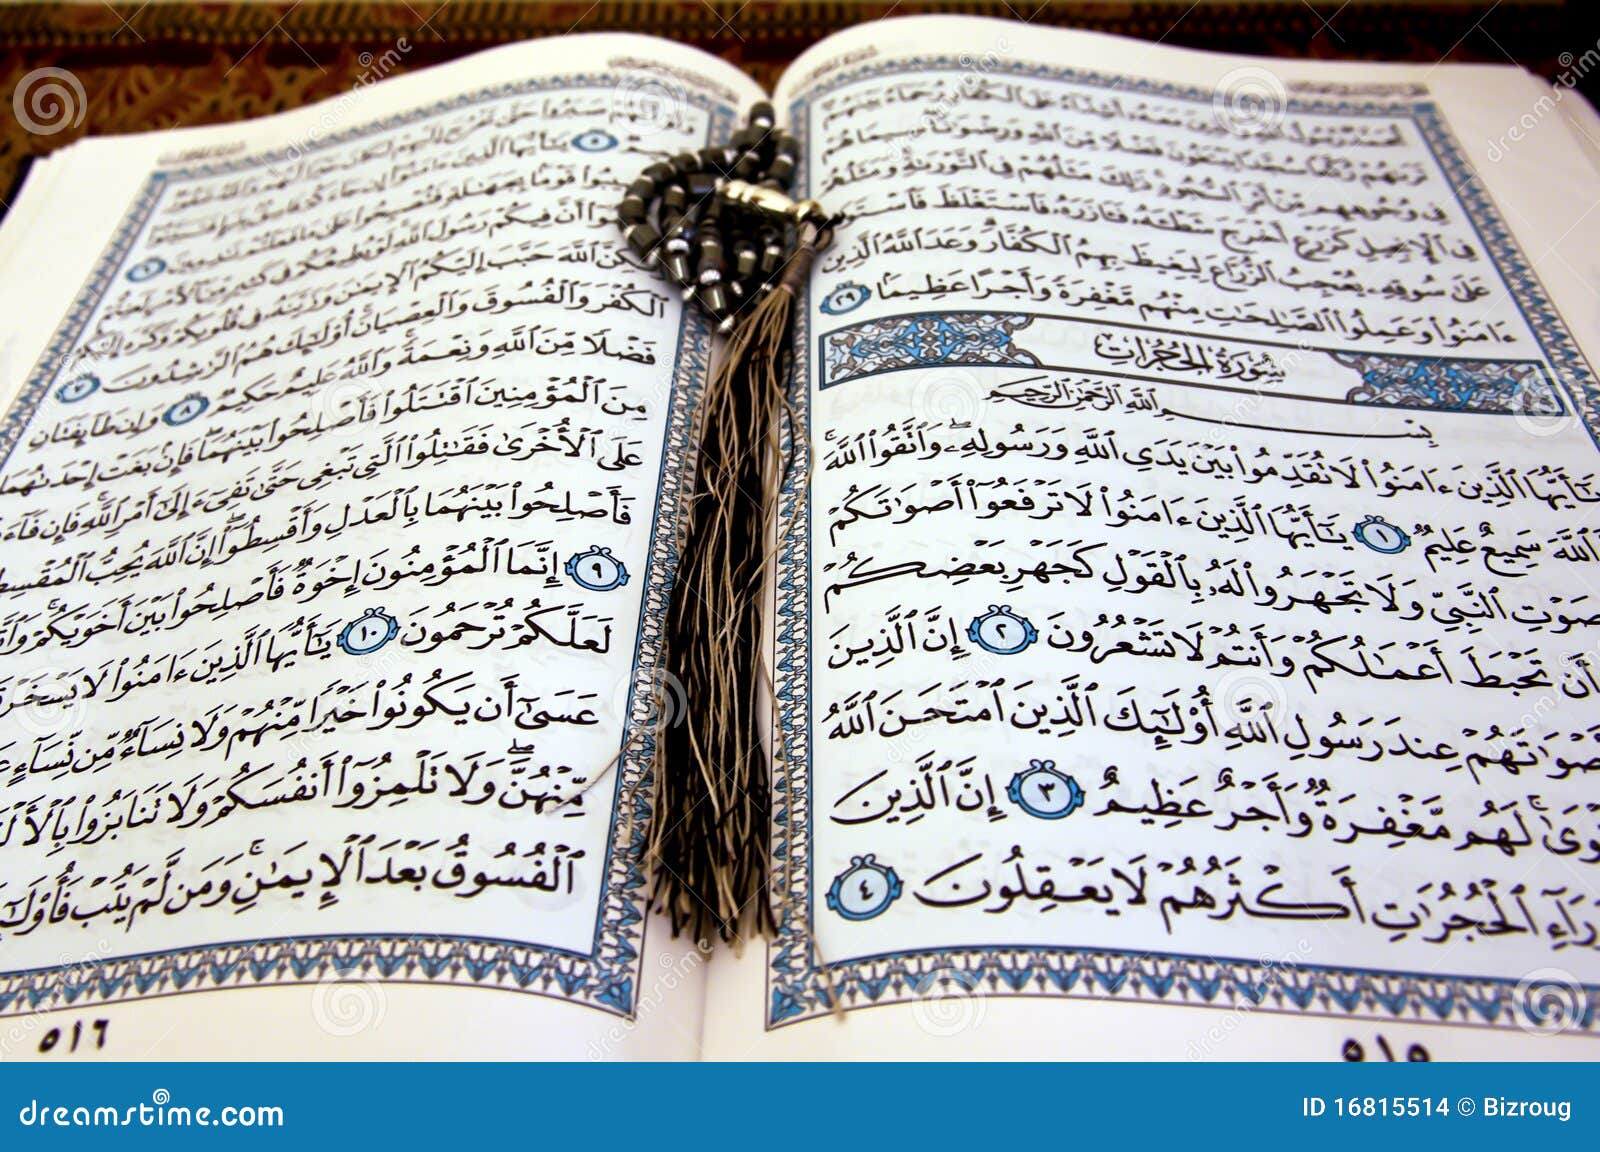 مُّحَمَّدٌ رَّسُولُ ٱللَّهِ وَٱلَّذِينَ مَعَهُۥٓ أَشِدَّآءُ عَلَى ٱلْكُفَّارِ رُحَمَآءُ بَيْنَهُمْ
تَرَىٰهُمْ رُكَّعًا سُجَّدًا يَبْتَغُونَ فَضْلًا مِّنَ ٱللَّهِ وَرِضْوَٰنًا سِيمَاهُمْ
فِي وُجُوهِهِم مِّنْ أَثَرِ ٱلسُّجُودِ ذَٰلِكَ مَثَلُهُمْ فِي ٱلتَّوْرَىٰةِ وَمَثَلُهُمْ
فِي ٱلْإِنجِيلِ كَزَرْعٍ أَخْرَجَ شَطْـَٔهُۥ فَـَٔازَرَهُۥ فَٱسْتَغْلَظَ فَٱسْتَوَىٰ
عَلَىٰ سُوقِهِۦ يُعْجِبُ ٱلزُّرَّاعَ لِيَغِيظَ بِهِمُ ٱلْكُفَّارَ وَعَدَ ٱللَّهُ ٱلَّذِينَ
ءَامَنُوا۟ وَعَمِلُوا۟ ٱلصَّٰلِحَٰتِ مِنْهُم مَّغْفِرَةً وَأَجْرًا عَظِيمًۢا ٢٩
سُورَةُ الحُجُرَاتِ
بِسْمِ ٱللَّهِ ٱلرَّحْمَٰنِ ٱلرَّحِيمِ
يَٰٓأَيُّهَا ٱلَّذِينَ ءَامَنُوا۟ لَا تُقَدِّمُوا۟ بَيْنَ يَدَىِ ٱللَّهِ وَرَسُولِهِۦ وَٱتَّقُوا۟ ٱللَّهَ
ٱللَّهَ سَمِيعٌ عَلِيمٌ ١ يَٰٓأَيُّهَا ٱلَّذِينَ ءَامَنُوا۟ لَا تَرْفَعُوٓا۟ أَصْوَٰتَكُمْ
صَوْتِ ٱلنَّبِىِّ وَلَا تَجْهَرُوا۟ لَهُۥ بِٱلْقَوْلِ كَجَهْرِ بَعْضِكُمْ
أَن تَحْبَطَ أَعْمَٰلُكُمْ وَأَنتُمْ لَا تَشْعُرُونَ ٢ إِنَّ ٱلَّذِينَ
صْوَٰتَهُمْ عِندَ رَسُولِ ٱللَّهِ أُو۟لَٰٓئِكَ ٱلَّذِينَ ٱمْتَحَنَ ٱللَّهُ
قْوَىٰ لَهُم مَّغْفِرَةٌ وَأَجْرٌ عَظِيمٌ ٣ إِنَّ ٱلَّذِينَ
وَرَآءِ ٱلْحُجُرَٰتِ أَكْثَرُهُمْ لَا يَعْقِلُونَ ٤
٥١٥
وَلَوْ أَنَّهُمْ صَبَرُوا۟ حَتَّىٰ تَخْرُجَ إِلَيْهِمْ لَكَانَ خَيْرًا لَّهُمْ وَٱللَّهُ غَفُورٌ
٥ يَٰٓأَيُّهَا ٱلَّذِينَ ءَامَنُوٓا۟ إِن جَآءَكُمْ فَاسِقٌۢ بِنَبَإٍ فَتَبَيَّنُوٓا۟
تُصِيبُوا۟ قَوْمًۢا بِجَهَٰلَةٍ فَتُصْبِحُوا۟ عَلَىٰ مَا فَعَلْتُمْ نَٰدِمِينَ ٦
وَٱعْلَمُوٓا۟ أَنَّ فِيكُمْ رَسُولَ ٱللَّهِ لَوْ يُطِيعُكُمْ فِى كَثِيرٍ مِّنَ ٱلْأَمْرِ لَعَنِتُّمْ
وَلَٰكِنَّ ٱللَّهَ حَبَّبَ إِلَيْكُمُ ٱلْإِيمَٰنَ وَزَيَّنَهُۥ فِى قُلُوبِكُمْ وَكَرَّهَ إِلَيْكُمُ
ٱلْكُفْرَ وَٱلْفُسُوقَ وَٱلْعِصْيَانَ أُو۟لَٰٓئِكَ هُمُ ٱلرَّٰشِدُونَ ٧
فَضْلًا مِّنَ ٱللَّهِ وَنِعْمَةً وَٱللَّهُ عَلِيمٌ حَكِيمٌ ٨ وَإِن طَآئِفَتَانِ
مِنَ ٱلْمُؤْمِنِينَ ٱقْتَتَلُوا۟ فَأَصْلِحُوا۟ بَيْنَهُمَا فَإِنۢ بَغَتْ إِحْدَىٰهُمَا
عَلَى ٱلْأُخْرَىٰ فَقَٰتِلُوا۟ ٱلَّتِى تَبْغِى حَتَّىٰ تَفِىٓءَ إِلَىٰٓ أَمْرِ ٱللَّهِ فَإِن فَآءَتْ
فَأَصْلِحُوا۟ بَيْنَهُمَا بِٱلْعَدْلِ وَأَقْسِطُوٓا۟ إِنَّ ٱللَّهَ يُحِبُّ ٱلْمُقْسِطِ
٩ إِنَّمَا ٱلْمُؤْمِنُونَ إِخْوَةٌ فَأَصْلِحُوا۟ بَيْنَ أَخَوَيْكُمْ وَٱتَّ
لَعَلَّكُمْ تُرْحَمُونَ ١٠ يَٰٓأَيُّهَا ٱلَّذِينَ ءَامَنُوا۟ لَا يَسْخَرْ
عَسَىٰٓ أَن يَكُونُوا۟ خَيْرًا مِّنْهُمْ وَلَا نِسَآءٌ مِّن نِّسَآءٍ عَ
مِّنْهُنَّ وَلَا تَلْمِزُوٓا۟ أَنفُسَكُمْ وَلَا تَنَابَزُوا۟ بِٱلْأَلْ
ٱلْفُسُوقُ بَعْدَ ٱلْإِيمَٰنِ وَمَن لَّمْ يَتُبْ فَأُو۟لَٰٓئِ
٥١٦
dreamstime.com
ID 16815514 © Bizroug